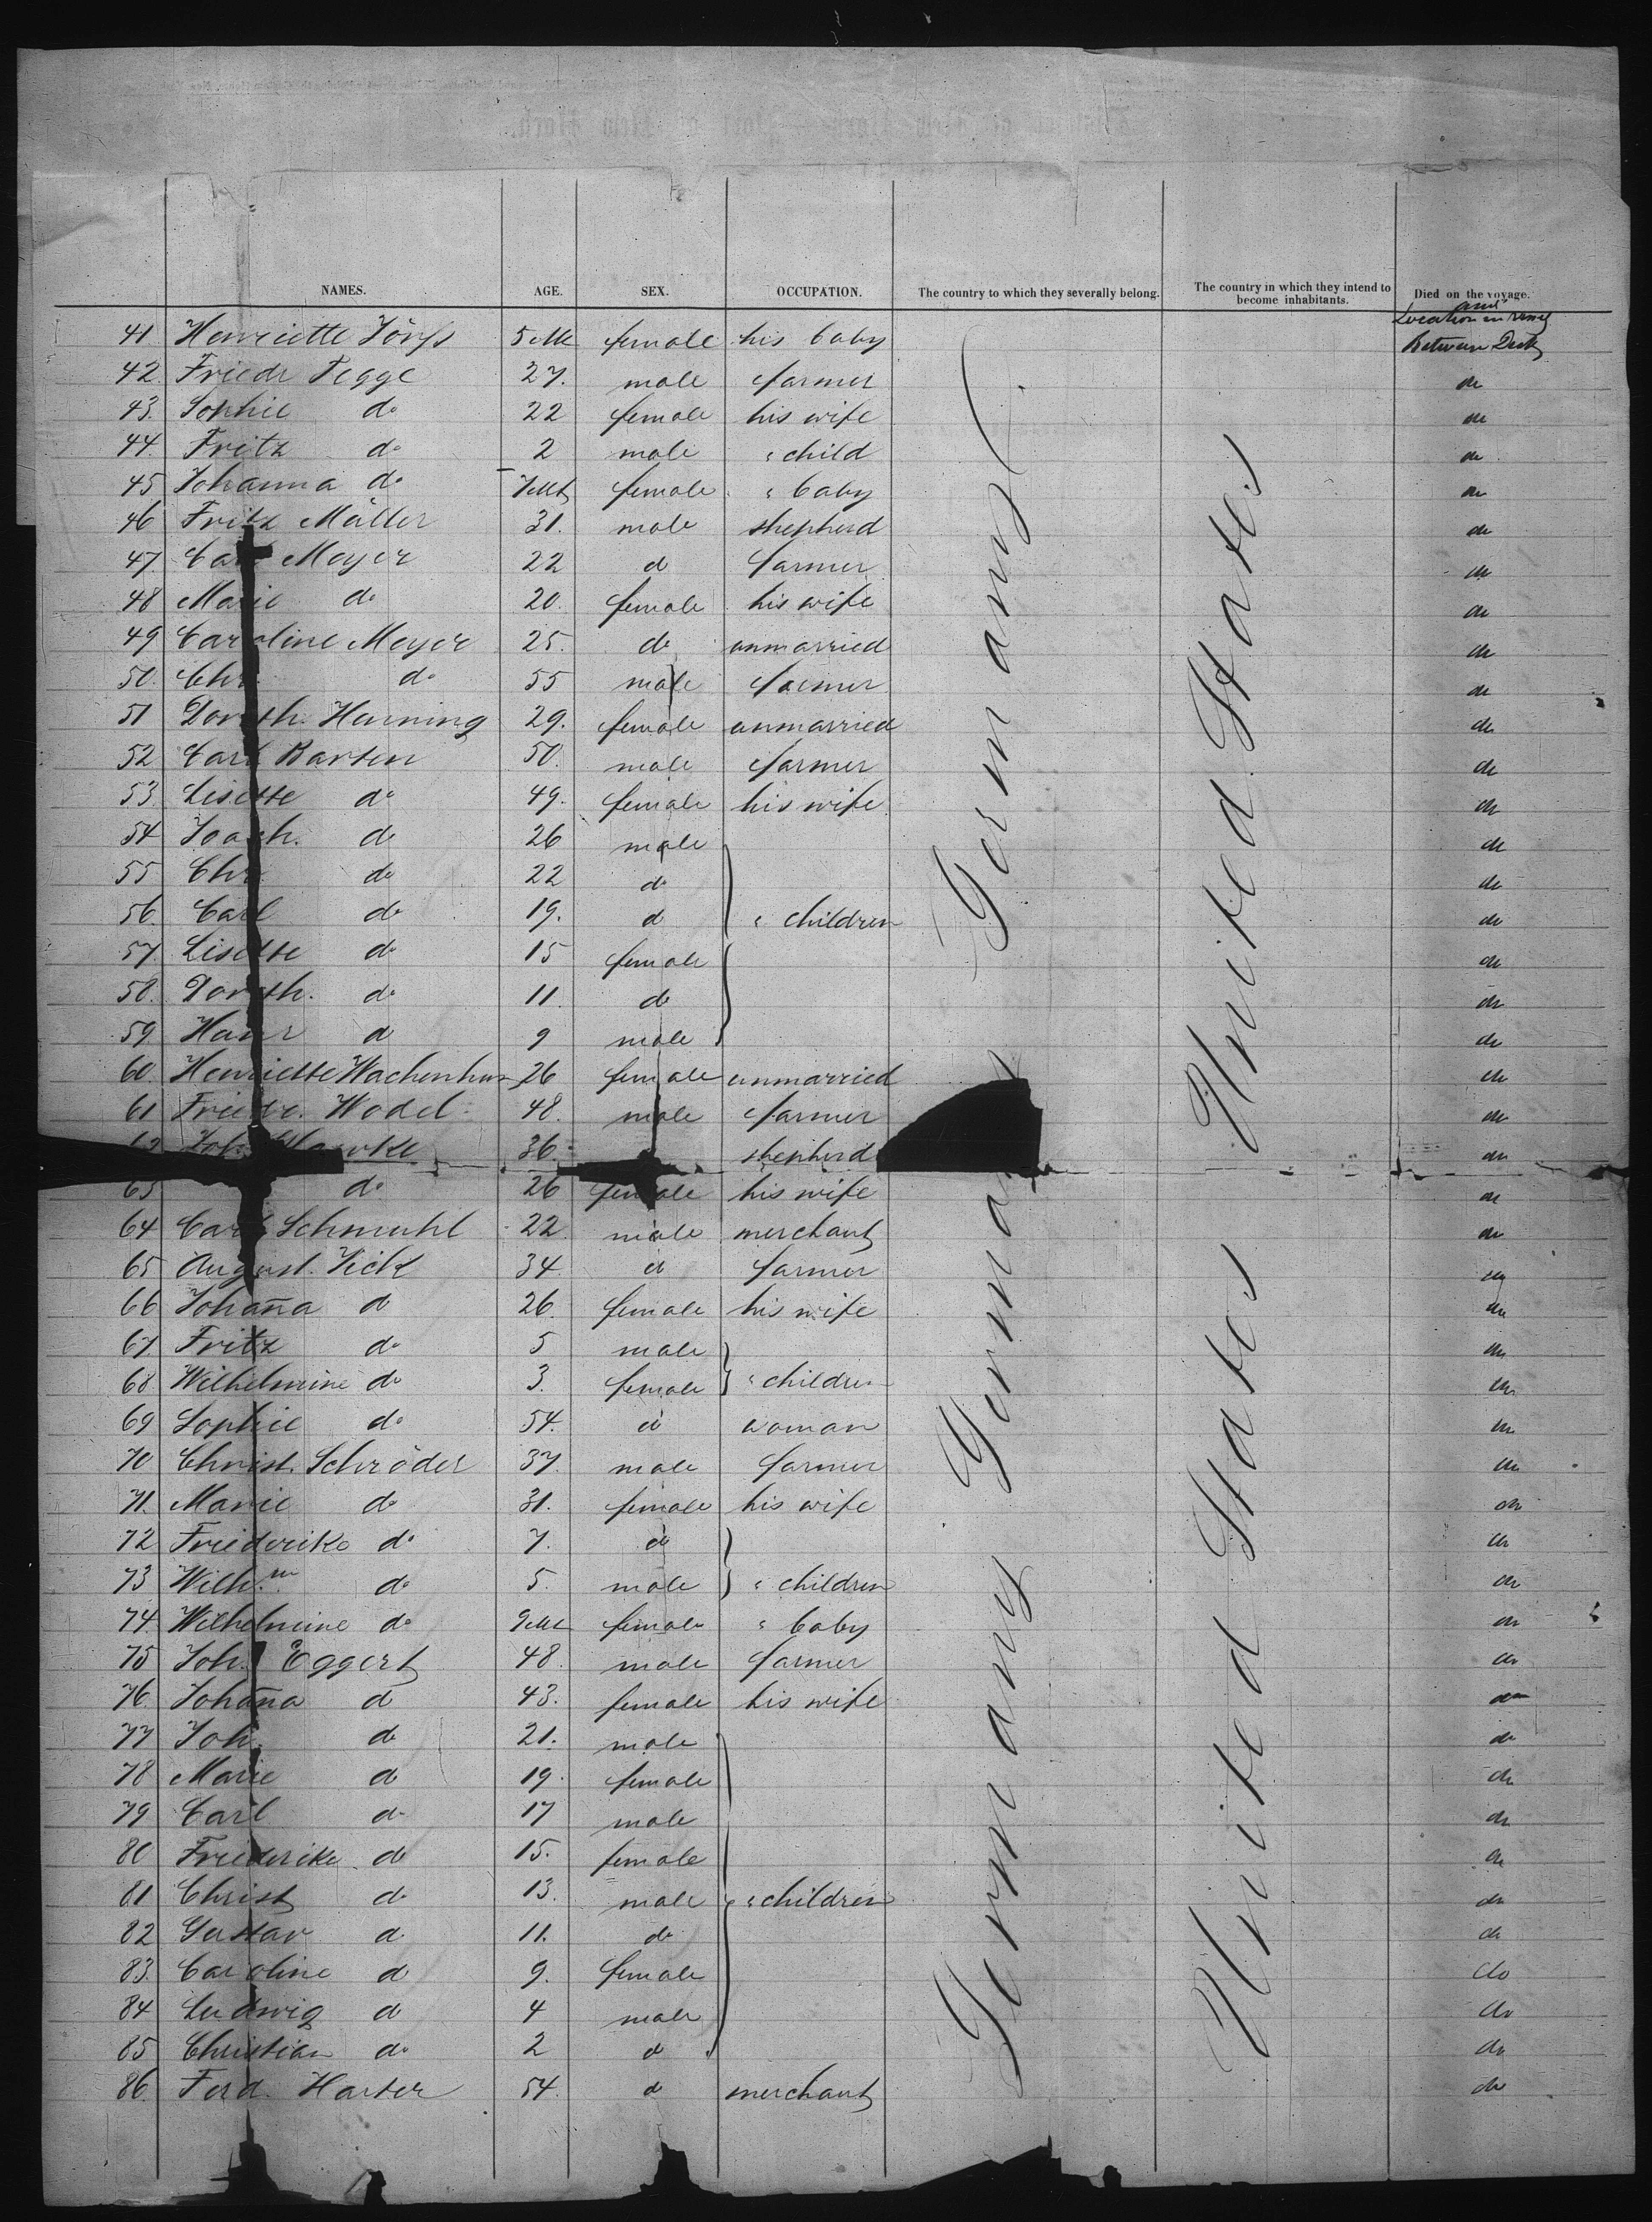 NAMES. AGE. SEX. OCCUPATION. The country to which they severally belong. The country in which they intend to become inhabitants. Died on the voyage.
and
Location in vessel
41 Henriette 5 Mt female his baby Between Deck
42. Friedr Tegge 27. male farmer do
43. Sophie do 22 female his wife do
44. Fritz do 2 male " child do
45 Johanna do 7 Mt female " baby do
46 Fritz Müller 31. male shepherd do
47 Carl Meyer 22 d farmer do
48 Marie do 20. female his wife do
49 Caroline Meyer 25. do unmarried do
50. Chr. do 55 male farmer do
51 Doroth. Henning 29. female unmarried do
52 Carl Barten 50. male farmer do
53. Lisette do 49. female his wife do
54 Joach. do 26 male do
55 Chr. do 22 do do
56. Carl do 19. d " children do
57. Lisette do 15 female do
58. Doroth. do 11. do do
59 Hans d 9 male do
60. Henriette Wachenhus 26 female unmarried do
61 Friedr. Wodel 48. male farmer do
62 Joh. 36. shepherd do
63 do 26 female his wife do
64 Carl Schmuhl 22 male merchant do
65 August. Vick 34 d farmer do
66 Joha͞na d 26. female his wife do
67. Fritz do 5 male do
68 Wilhelmine do 3. female " children do
69 Sophie do 54. d woman do
70 Christ. Schröder 37. male farmer do
71. Marie do 31. female his wife do
72 Friederike do 7. d do
73 Wilh.m do 5. male " children do
74. Wilhelmine do 9 Mt female " baby do
75 Joh. Eggert 48. male farmer do
76. Joha͞na d 43. female his wife do
77 Joh. do 21. male do
78 Marie d 19. female do
79 Carl do 17 male do
80 Friederike do 15. female do
81 Christ do 13. male " children do
82 Gustav d. 11. do do
83. Caroline d 9. female do
84 Ludwig d 4 male do
85 Christian do 2 d do
86. Ferd. Harter 54. d merchant do
Germany
Germany
Germany
United States
United States